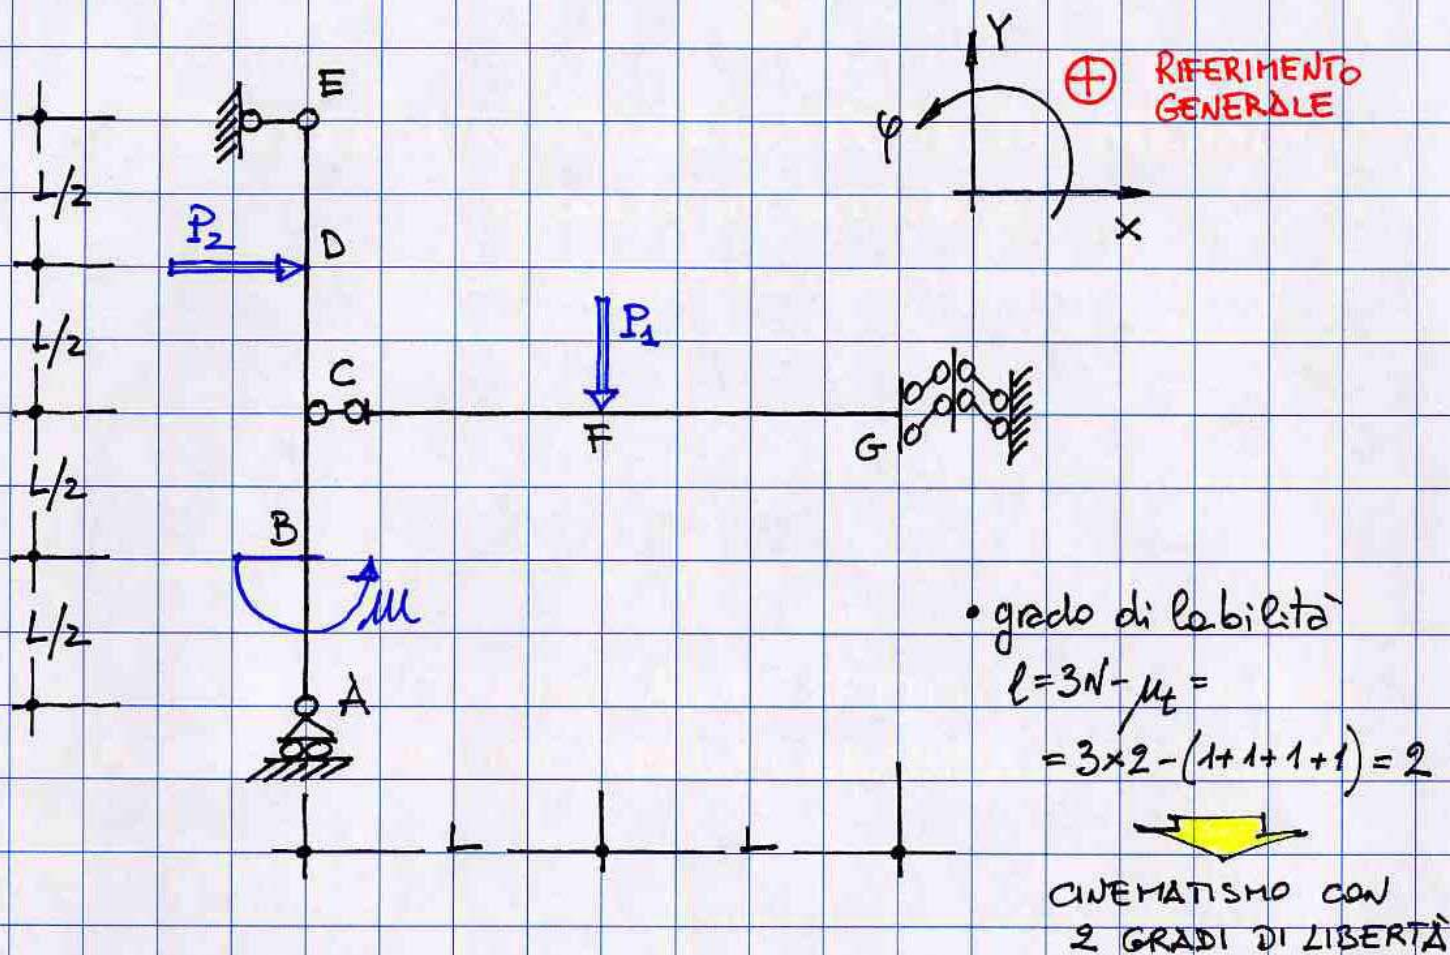 Y
⊕ RIFERIMENTO
GENERALE
φ
X
E
L/2
P₂
D
L/2
P₁
C
F
G
L/2
B
μ
L/2
A
L
L
• grado di labilità
l=3N-μt=
=3×2-(1+1+1+1)=2
CINEMATISMO CON
2 GRADI DI LIBERTÀ